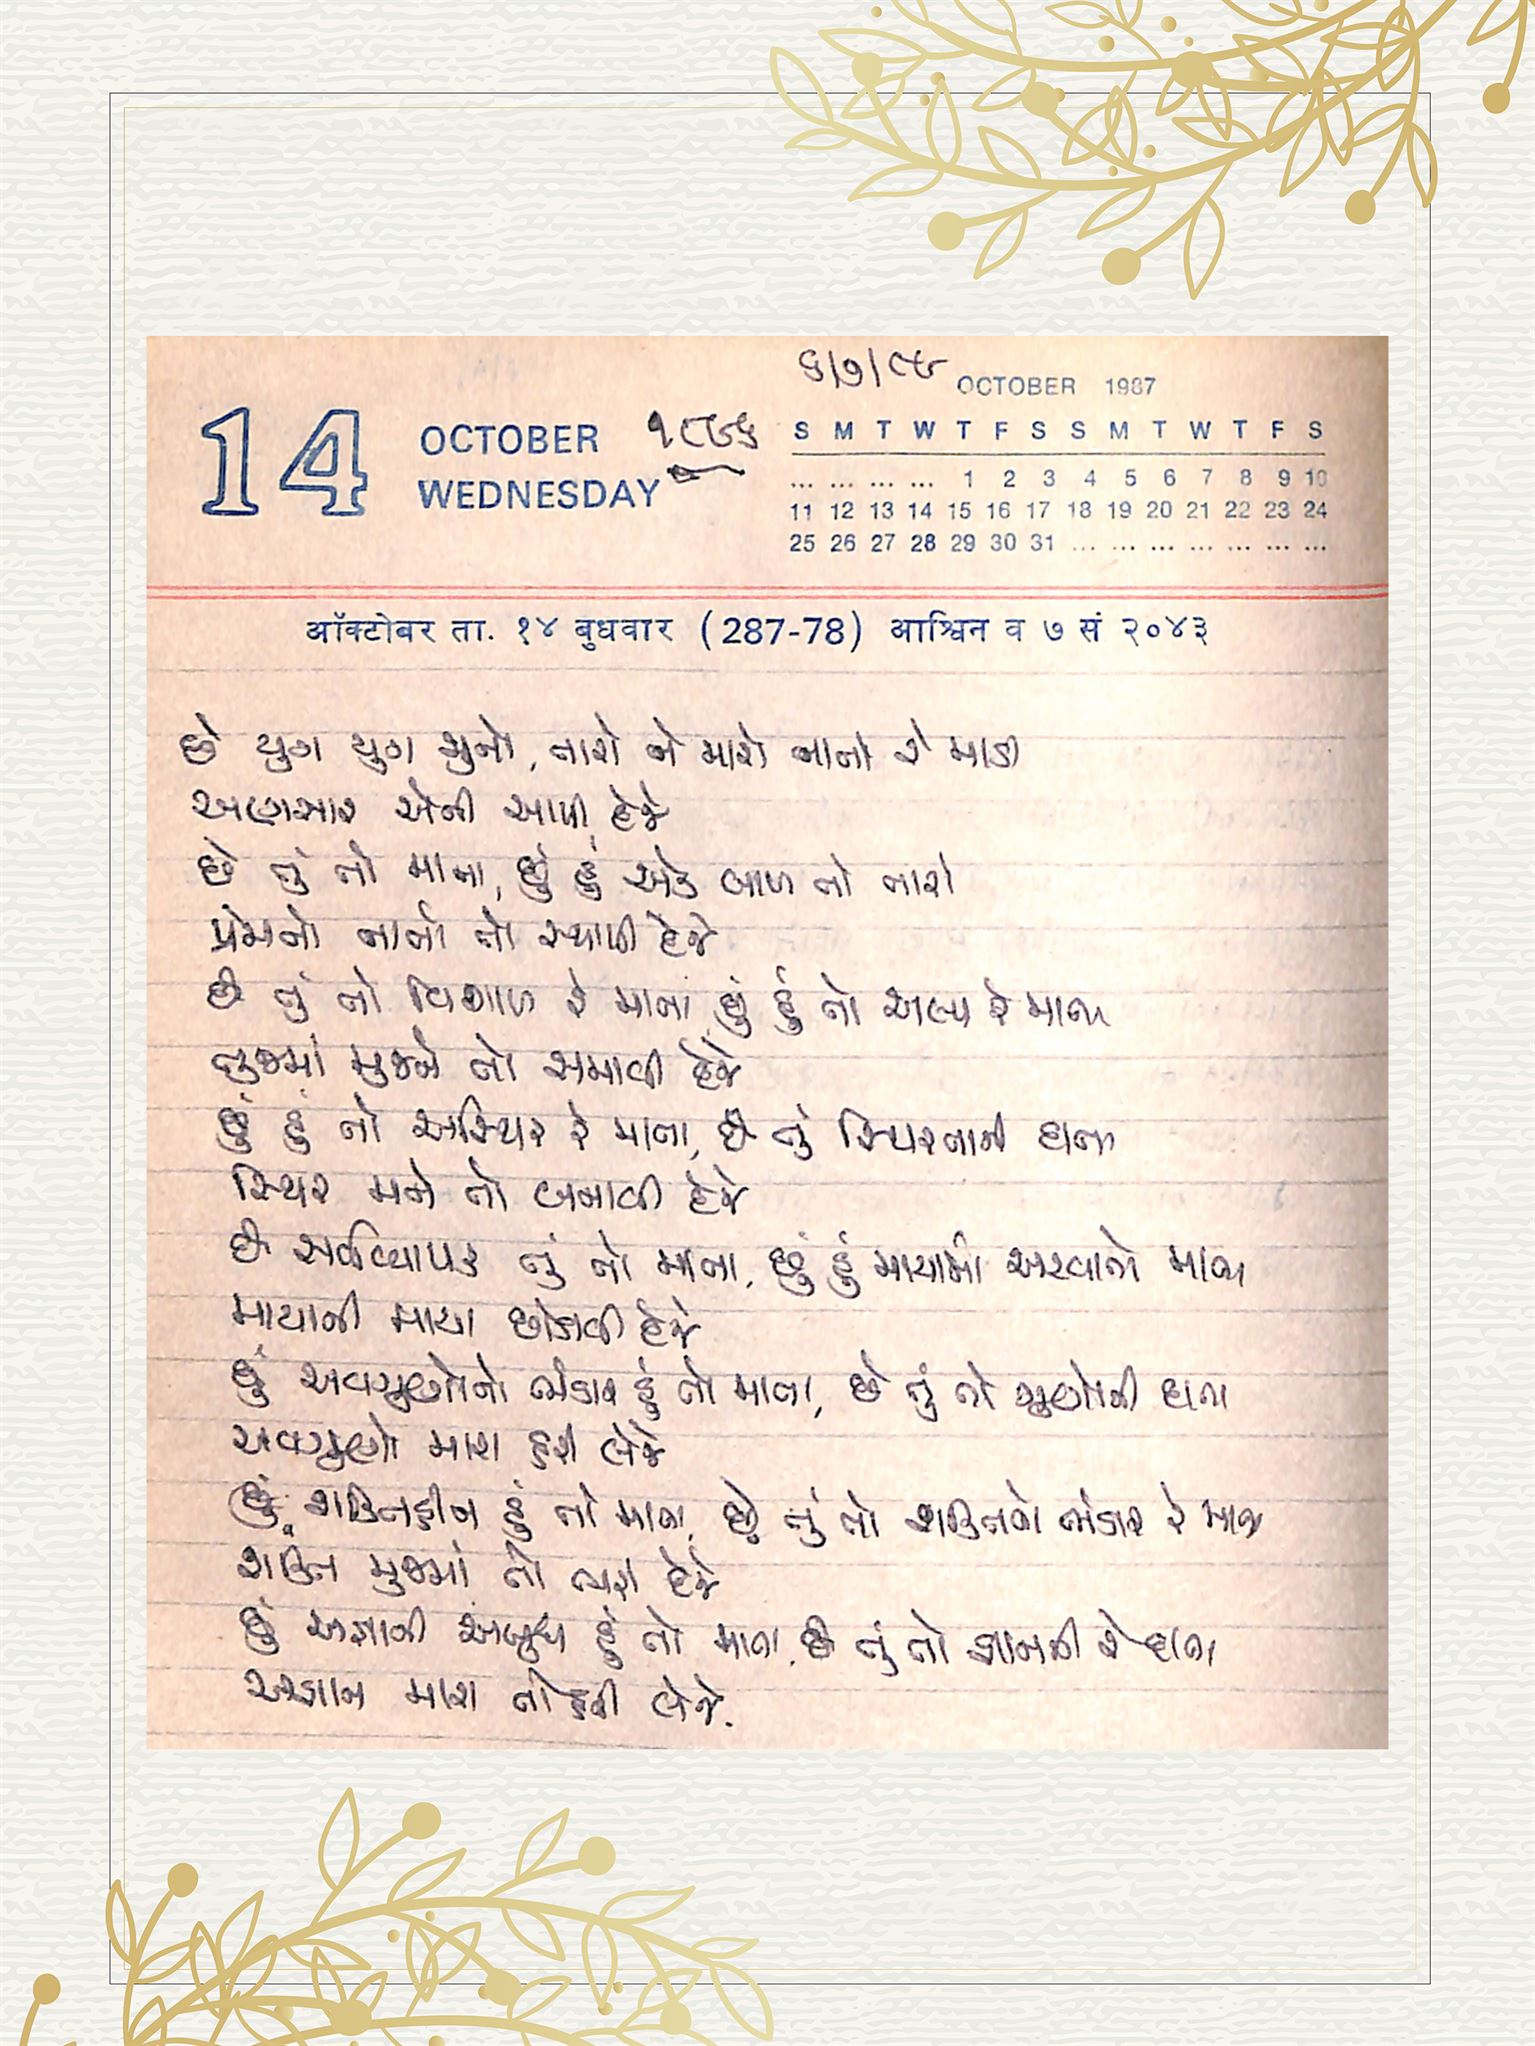 ૬/૭/૮૯
14 OCTOBER WEDNESDAY ૧૯૬૬
OCTOBER 1987
S M T W T F S S M T W T F S
... ... ... ... 1 2 3 4 5 6 7 8 9 10
11 12 13 14 15 16 17 18 19 20 21 22 23 24
25 26 27 28 29 30 31 ... ... ... ... ... ... ...
ऑक्टोबर ता. १४ बुधवार (287-78) आश्विन व ७ सं २०४३
છે યુગ યુગ જુનો, તારો ને મારો નાતો રે માડી
અણસાર એની આપી દેજે
છે તું તો માતા, છું હું એક બાળ તો તારો
પ્રેમનો નાતો તો સ્થાપી દેજે
છે તું તો વિશાળ રે માતા, છું હું તો અલ્પ રે માતા
તુજમાં મુજને તો સમાવી દેજે
છું હું તો અસ્થિર રે માતા, છે તું સ્થિરતાની દાતા
સ્થિર મને તો બનાવી દેજે
છે સર્વવ્યાપક તું તો માતા, છું હું માયામાં અટવાતો માતા
માયાની માયા છોડાવી દેજે
છું અવગુણોનો ભંડાર હું તો માતા, છે તું તો ગુણોની દાતા
અવગુણો મારા હરી લેજે
છું શક્તિહીન હું તો માતા, છે તું તો શક્તિનો ભંડાર રે માતા
શક્તિ મુજમાં તો ભરી દેજે
છું અજ્ઞાની અબુધ હું તો માતા, છે તું તો જ્ઞાનની રે દાતા
અજ્ઞાન મારા તો હરી લેજે.